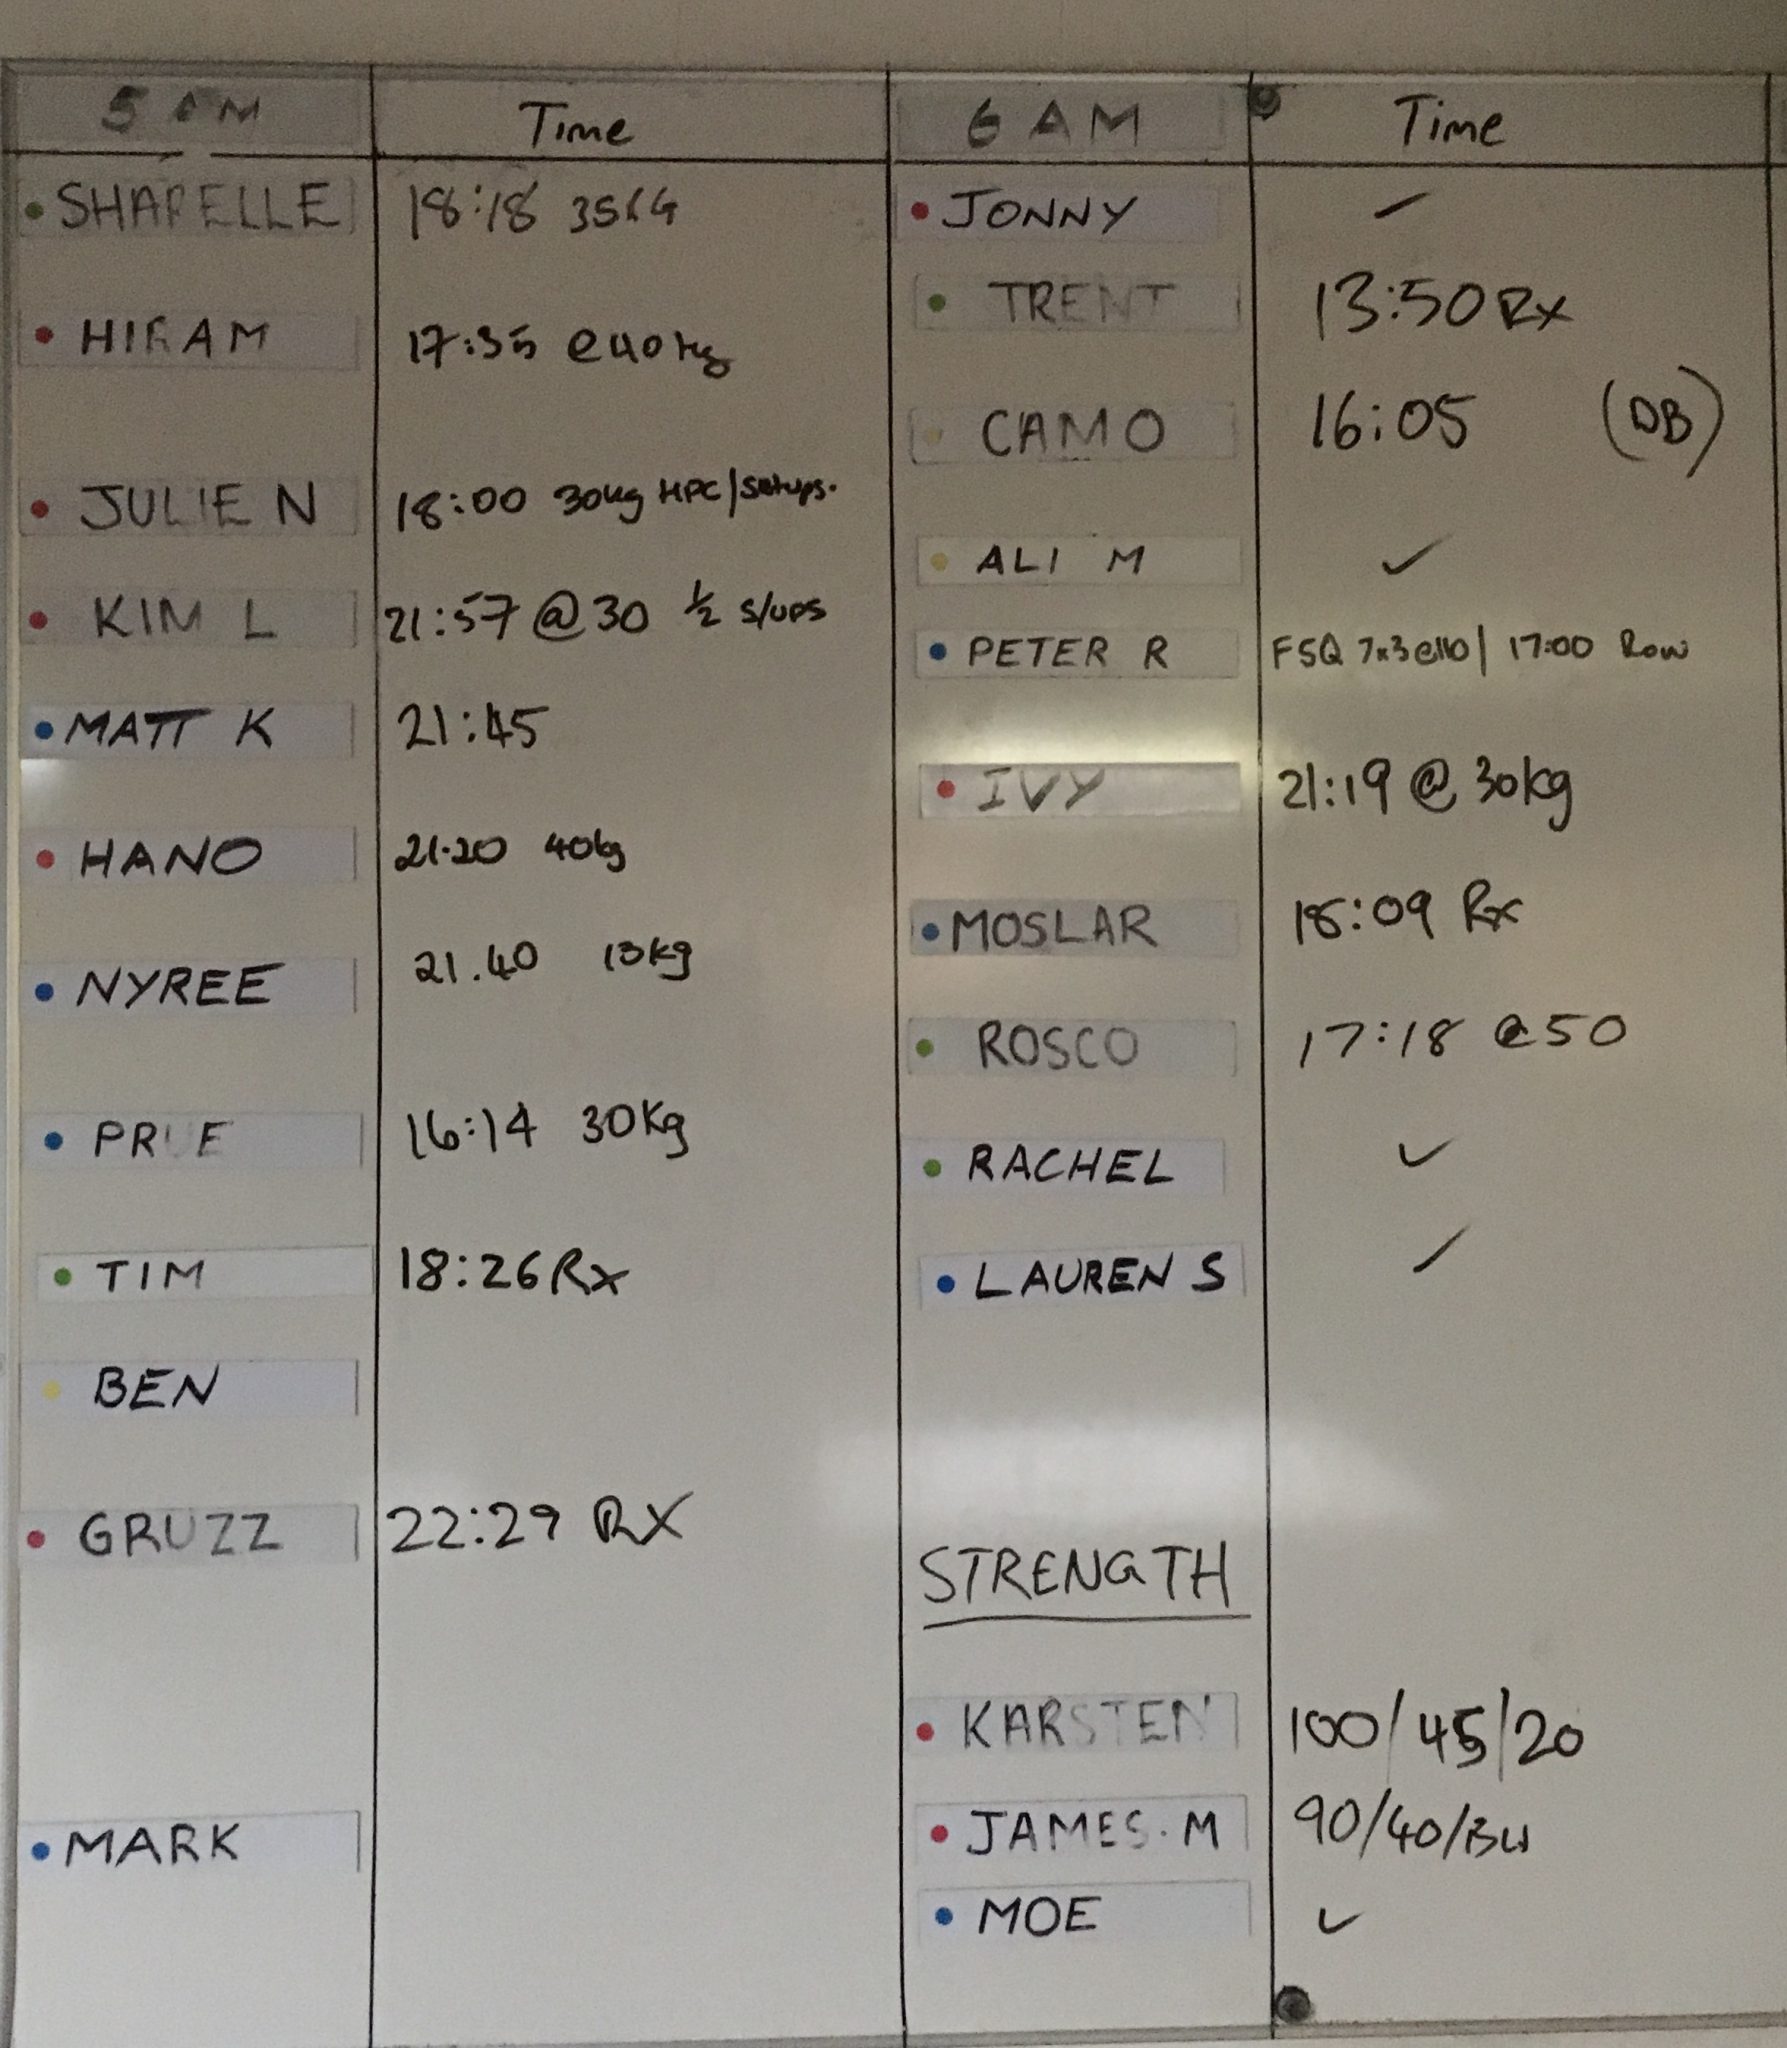 5 AM
Time
SHAPELLE
18:18 35KG
HIRAM
17:35 @40kg
JULIE N
18:00 30kg HPC/situps.
KIM L
21:57 @ 30 ½ S/UPS
MATT K
21:45
HANO
21.20 40kg
NYREE
21.40 13kg
PRUE
16:14 30Kg
TIM
18:26 Rx
BEN
GRUZZ
22:29 RX
MARK
6 AM
Time
JONNY
TRENT
13:50 Rx
CAMO
16:05 (DB)
ALI M
✓
PETER R
FSQ 7x3@110 | 17:00 Row
IVY
21:19 @ 30kg
MOSLAR
18:09 Rx
ROSCO
17:18 @50
RACHEL
✓
LAUREN S
STRENGTH
KARSTEN
100/45/20
JAMES. M
90/40/BW
MOE
✓